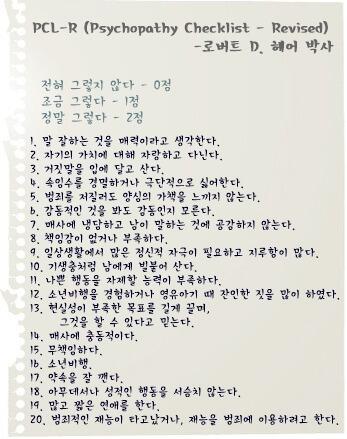 PCL-R (Psychopathy Checklist - Revised)
-로버트 D. 헤어 박사
전혀 그렇지 않다 - 0점
조금 그렇다 - 1점
정말 그렇다 - 2점
1. 말 잘하는 것을 매력이라고 생각한다.
2. 자기의 가치에 대해 자랑하고 다닌다.
3. 거짓말을 입에 달고 산다.
4. 속임수를 경멸하거나 극단적으로 싫어한다.
5. 범죄를 저질러도 양심의 가책을 느끼지 않는다.
6. 감동적인 것을 봐도 감동인지 모른다.
7. 매사에 냉담하고 남이 말하는 것에 공감하지 않는다.
8. 책임감이 없거나 부족하다.
9. 일상생활에서 많은 정신적 자극이 필요하고 지루함이 많다.
10. 기생충처럼 남에게 빌붙어 산다.
11. 나쁜 행동을 자제할 능력이 부족하다.
12. 소년비행을 경험하거나 영유아기 때 잔인한 짓을 많이 하였다.
13. 현실성이 부족한 목표를 길게 끌며,
그것을 할 수 있다고 믿는다.
14. 매사에 충동적이다.
15. 무책임하다.
16. 소년비행.
17. 약속을 잘 깬다.
18. 아무데서나 성적인 행동을 서슴치 않는다.
19. 많고 짧은 연애를 한다.
20. 범죄적인 재능이 타고났거나, 재능을 범죄에 이용하려고 한다.